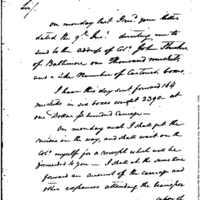 Sir/
On monday last I rec'd your letter
dated the 9th Inst directing me to
send to the address of Col. John Stricker
of Baltimore one Thousand muskets
and a like Number of Cartouch boxes.
I have this day sent forward 164
muskets in six boxes weight 2390 at
one Dollar pr hundred Carriage—
On monday next I shall get the
residue on the way, and shall wait on the
Col. myself for a receipt which will be
forwarded to you — I shall at the same time
forward an account of the carriage and
other expenses attending the transfer